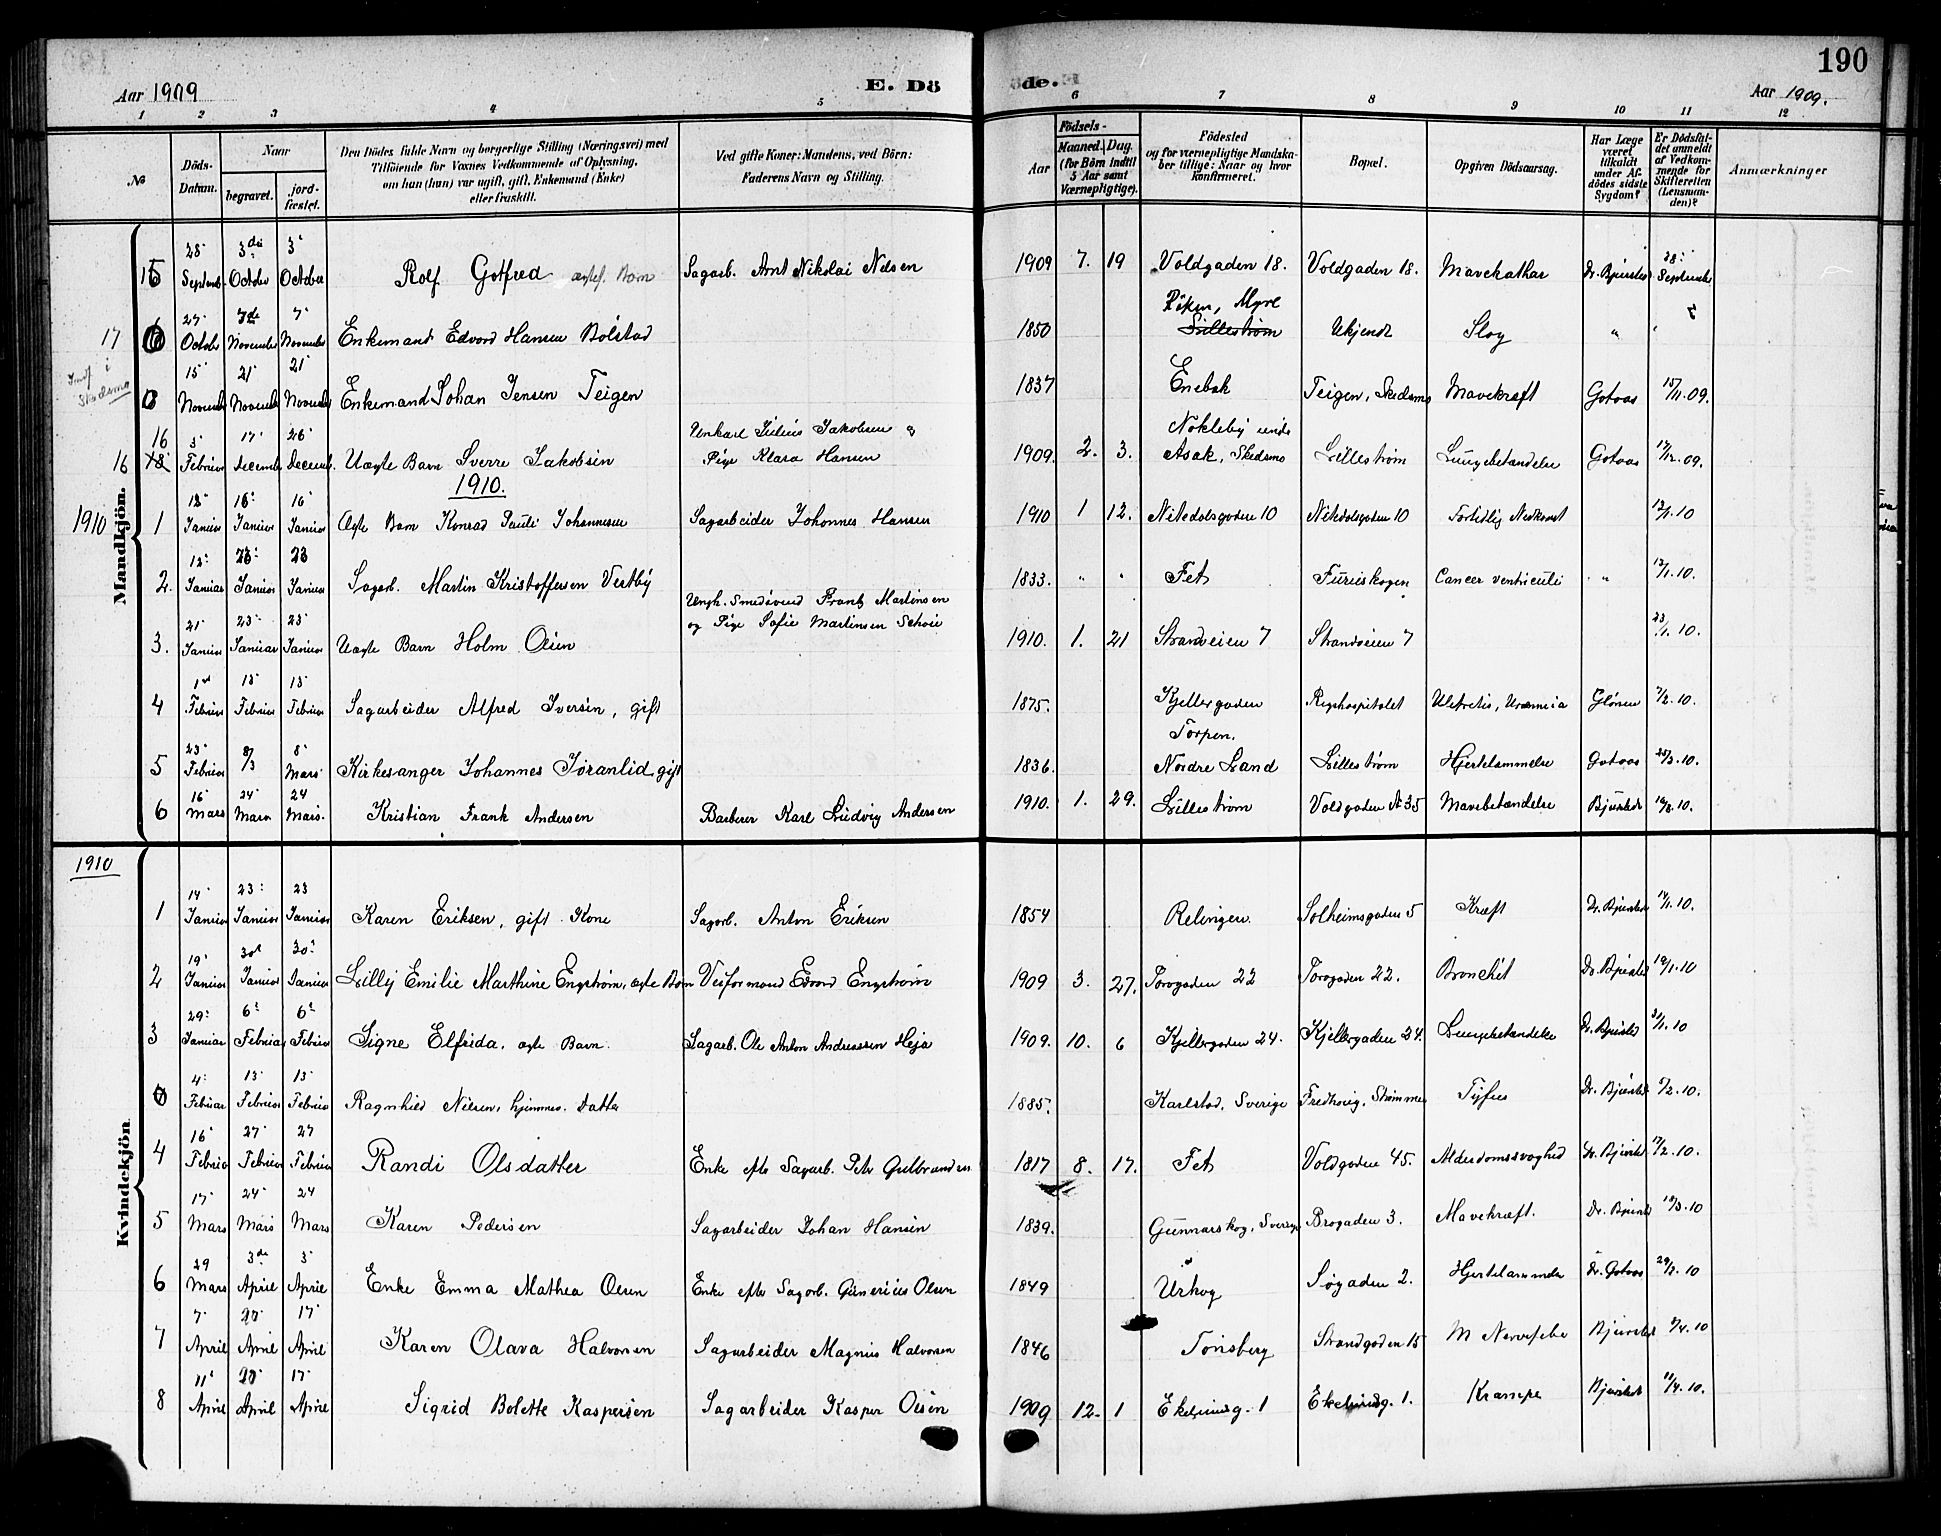 190
Aar 1909 E. Dö de. Aar 1909.
1 2 3 4 5 6 7 8 9 10 11 12
№
Döds-Datum.
Naar
begravet.
jordfæstet.
Den Dödes fulde Navn og borgerlige Stilling (Næringsvei) med
Tilföiende for Voxnes Vedkommende af Oplysning,
om han (hun) var ugift, gift, Enkemand (Enke)
eller fraskilt.
Ved gifte Koner: Mandens, ved Börn:
Faderens Navn og Stilling.
Födsels-
Aar
Maaned. Dag.
(for Börn indtil
5 Aar samt
Værnepligtige).
Födested
og for værnepligtige Mandska-
ber tillige: Naar og hvor
konfirmeret.
Bopæl.
Opgiven Dödsaarsag.
Har Læge
været
tilkaldt
under Af-
dödes sidste
Sygdom?
Er Dödsfal-
det anmeldt
af Vedkom-
mende for
Skifteretten
(Lensman-
den)?
Anmærkninger
Mandkjön.
15 28 Septemb. 3die October 3 October Rolf Gotfred ægtef. Barn Sagarb. Arnt Nikolai Nilsen 1909 7. 19 Voldgaden 18. Voldgaden 18. Mavekathar Dr. Bjørsted 28 September
17 27 October 7de November 7 November Enkemand Edvard Hansen Bolstad 1850 Röken, Myre Lillestrøm Ukjendt Slag "
Indf i Skedsmo 0 15 November 21 November 21 November Enkemand Johan Jensen Teigen 1837 Enebak Teigen, Skedsmo Mavekræft Gotaas 15/11.09.
16 16 18 5 Februar 17 Decemb 26 Decemb. Uægte Barn Sverre Jakobsen Unkarl Julius Jakobsen og Pige Klara Hansen 1909. 2. 3. Nokleby under Asak, Skedsmo Lillestrøm Lungebetændelse Gotaas 17/12.09.
1910.
1910 1 12 Januar 16 Januar 16 Januar Ægte Barn Konrad Pauli Johannesen Sagarbeider Johannes Hansen 1910 1 12. Nitedalsgaden 10 Nitedalsgaden 10 Fortidlig Nedkomst 12/1.10
2. 12 Januar 23 Januar 23 Januar Sagarb. Martin Kristoffersen Vestby 1833. " " Fet Furuskogen Cancer ventriculi " 12/1.10.
3. 21 Januar 23 Januar 23 Januar Uægte Barn Holm Olsen Ungk. Smedsvend Frantz Martinsen og Pige Sofie Martinsen 1910. 1. 21 Strandveien 7 Strandveien 7 23/1.10.
4 1st Februar 13 Februar 13 Februar Sagarbeider Alfred Iversen, gift 1875. Kjellergaden Rigshospitalet Uræmia 2/2.10.
5 23 Februar 8/3 8 Mars Kirkesanger Johannes Jøranlid gift 1836. Torpen. Nordre Land Lillestrøm Hjertelammelse Gotaas 25/2.10.
6 16 Mars 24 Mars 24 Mars. Kristian Frank Andersen Barberer Karl Ludvig Andersen 1910. 1. 29. Lillestrøm Voldgaden № 35 Mavebetændelse Bjørsted 16/3.10.
1910
Kvindekjön.
1 14 Januar 23 Januar 23 Januar Karen Eriksen, gift Kone Sagarb. Anton Eriksen 1854 Relingen Solheimsgaden 5 Kræft Dr. Bjørsted 14/1.10.
2 19 Januar 30t Januar 30 Januar Lilly Emilie Marthine Engstrøm, ægte Barn Veiformand Edvard Engstrøm 1909 3. 27. Torvgaden 22 Torvgaden 22. Bronchit Dr. Bjørsted 19/1.10
3 29 Januar 6 Februar 6 Februar Signe Elfrida, ægte Barn. Sagarb. Ole Anton Andreassen Heja 1909. 10. 6 Kjellergaden 24. Kjellergaden 24. Lungebetændelse Dr. Bjørsted 31/1.10
0 4 Februar 13 Februar 13 Februar Ragnhild Nilsen, hjemmev. Datter 1885. Karlstad, Sverige Fredhoug, Strømmen Tyfus Dr. Bjørsted 5/2.10.
4 16 Februar 27 Februar 27 Februar Randi Olsdatter Enke efter Sagarb. Petr Gulbrandsen 1817 8. 17. Fet Voldgaden 45. Alderdomssvaghed Dr. Bjørsted 17/2.10.
5 17 Mars 24 Mars 24 Mars Karen Pedersen Sagarbeider Johan Hansen 1839. Gunnarskog, Sverige Brogaden 3. Mavekræft. Dr. Bjørsted 18/3.10
6 29 Mars 3de April 3 April Enke Emma Mathea Olsen Enke efter Sagarb. Gunerius Olsen 1849 Urskog Søgaden 2. Hjertelammelse Dr. Gotaas 29/3.10
7 7 April 17 April 17 April Karen Olava Halvorsen Sagarbeider Magnus Halvorsen 1846 Tonsberg Strandgaden 15 Nervefeber Bjørsted 8/4.10
8 11 April 17 April 17 April Sigrid Bolette Kaspersen Sagarbeider Kasper Olsen 1909 12. 1 Ekelundsg. 1 Ekelundsg. 1. Krampe Bjørsted 11/4.10.